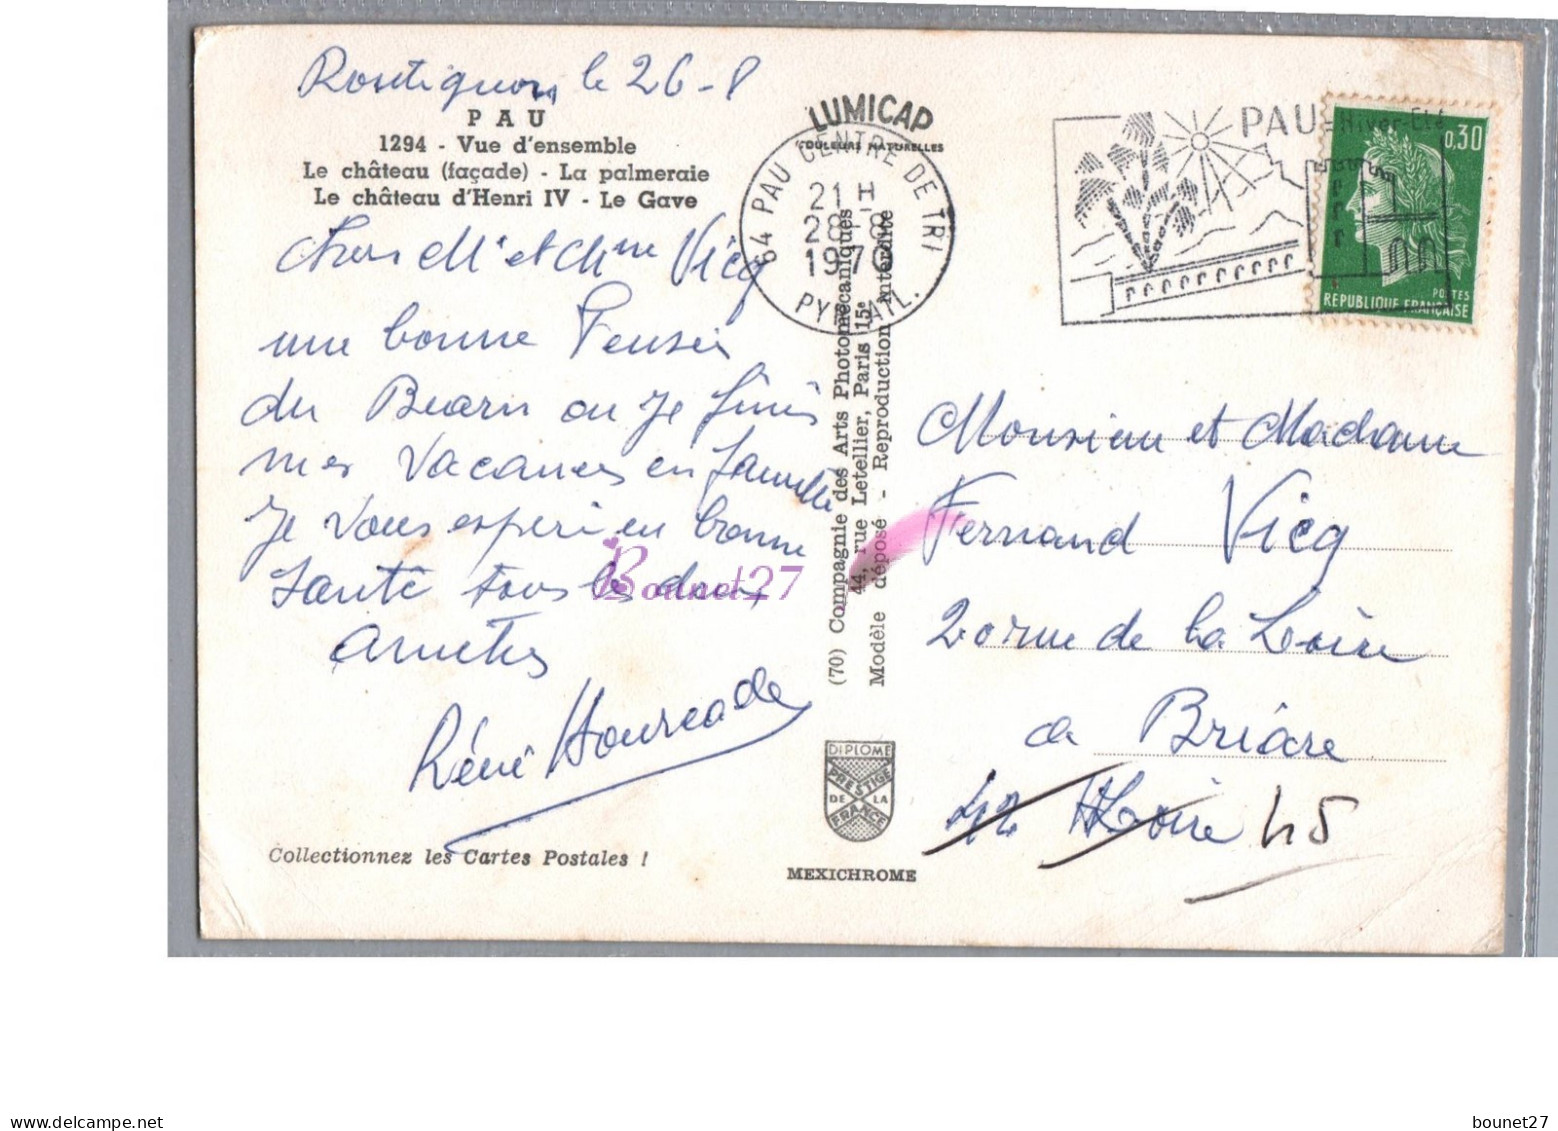 Rontignon le 26-8
PAU
1294 - Vue d'ensemble
Le château (façade) - La palmeraie
Le château d'Henri IV - Le Gave
Chers Mr et Mme Vicq
une bonne Pensée
du Bearn ou je finis
mes Vacances en famille
Je Vous esper en bonne
Santé tous les deux
Amitiés
Réné Hourcade
Collectionnez les Cartes Postales !
LUMICAP
COULEURS NATURELLES
64 PAU CENTRE DE TRI
21 H
28-8
1970
PYR. ATL.
(70) Compagnie des Arts Photomécaniques
44, rue Letellier, Paris 15e
Modèle déposé - Reproduction Interdite
DIPLOME
PRESTIGE
DE LA
FRANCE
MEXICHROME
PAU
Hiver-Eté
0,30
POSTES
REPUBLIQUE FRANÇAISE
Monsieur et Madame
Fernand Vicq
20 rue de la Loire
a Briare
42 H Loire 45
Bounet27
delcampe.net
bounet27